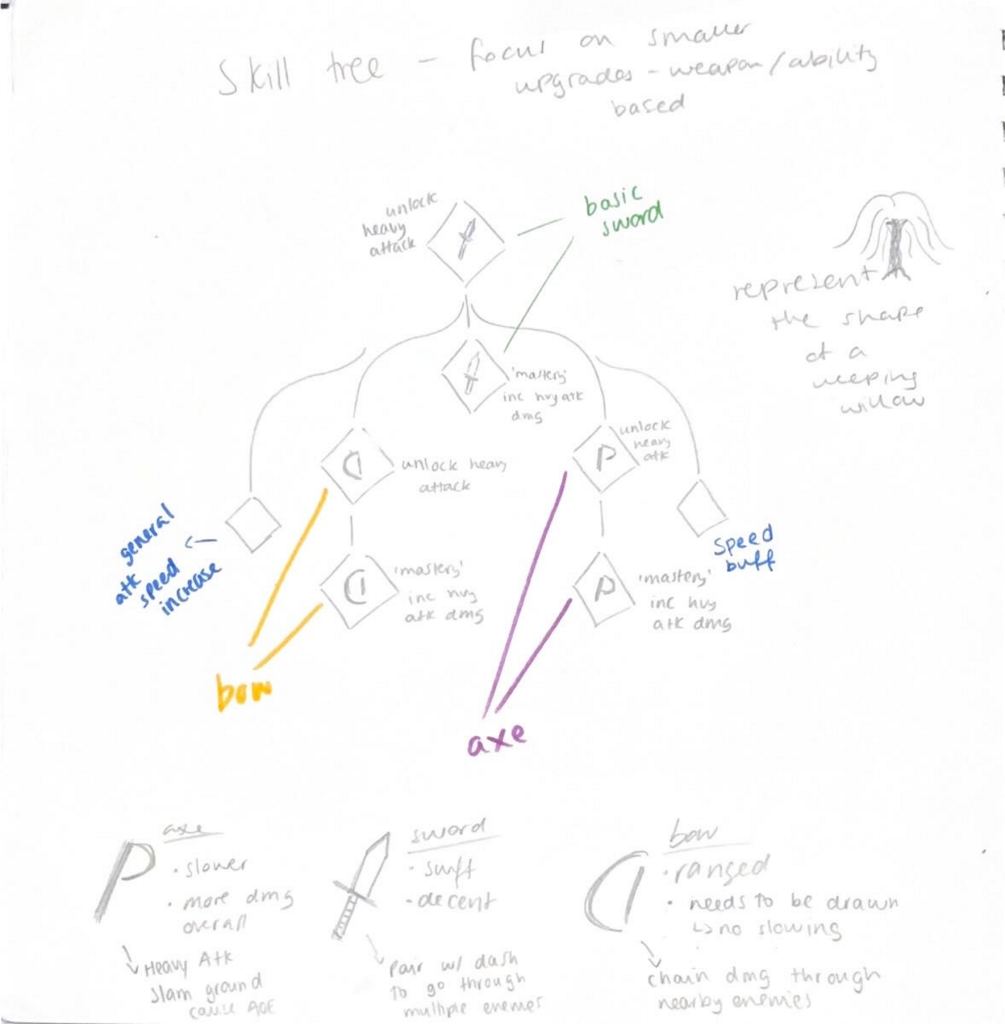 Skill tree - focus on smaller
upgrades - weapon/ability
based
unlock
heavy
attack
basic
sword
represent
the shape
of a
weeping
willow
'mastery'
inc hvy atk
dmg
unlock heavy
attack
unlock
heavy
atk
general
atk
speed
increase
speed
buff
'mastery'
inc hvy
atk dmg
'mastery'
inc hvy
atk dmg
bow
axe
axe
• slower
• more dmg
overall
Heavy Atk
Slam ground
cause AOE
sword
• swift
• decent
Pair w/ dash
to go through
multiple enemes
bow
• ranged
• needs to be drawn
↳ no slowing
chain dmg through
nearby enemies